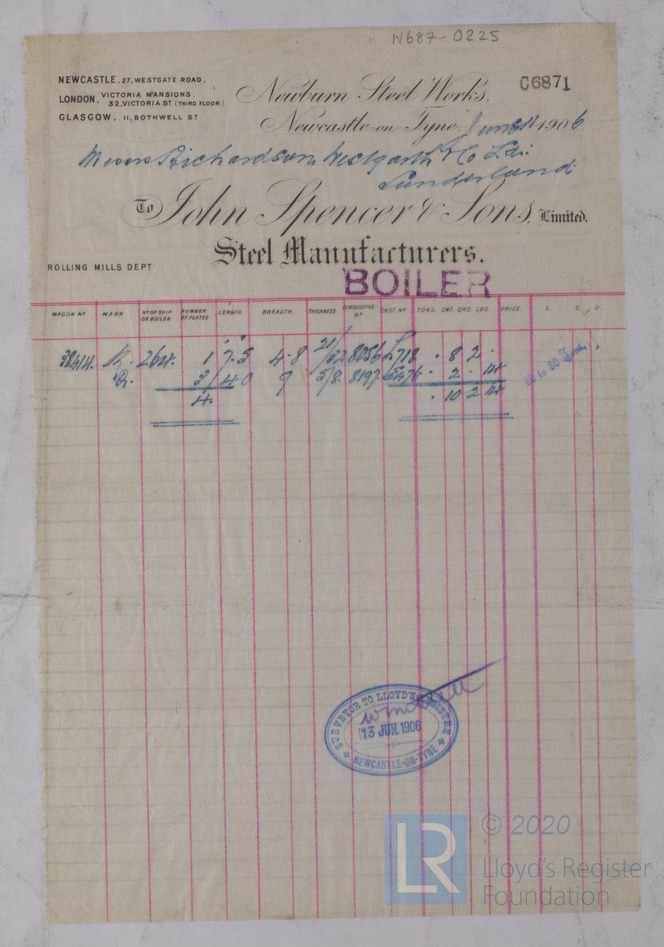 W687-0225
C6871
NEWCASTLE. 27, WESTGATE ROAD.
LONDON. VICTORIA MANSIONS.
32, VICTORIA ST (THIRD FLOOR)
GLASGOW. 11, BOTHWELL ST
Newburn Steel Works,
Newcastle-on-Tyne, 1906
Messrs Richardsons Westgarth & Co Ld:
Sunderland
To John Spencer & Sons, Limited.
Steel Manufacturers.
ROLLING MILLS DEPT
BOILER
WAGON No MARK No OF SHIP OR BOILER NUMBER OF PLATES LENGTH. BREADTH. THICKNESS. CONSECUTIVE No CAST No TONS. CWT. QRS. LBS. PRICE. £. S. D.
38414. R. 1 7.5 4.8 21/32 8056 . 8 2 .
R. 3 4 0 9 5/8. 8197 5476 . 2 . 14
4. . 10 2 14
SURVEYOR TO LLOYD'S REGISTER
13 JUN. 1906
NEWCASTLE-ON-TYNE
LR
© 2020
Lloyd's Register
Foundation